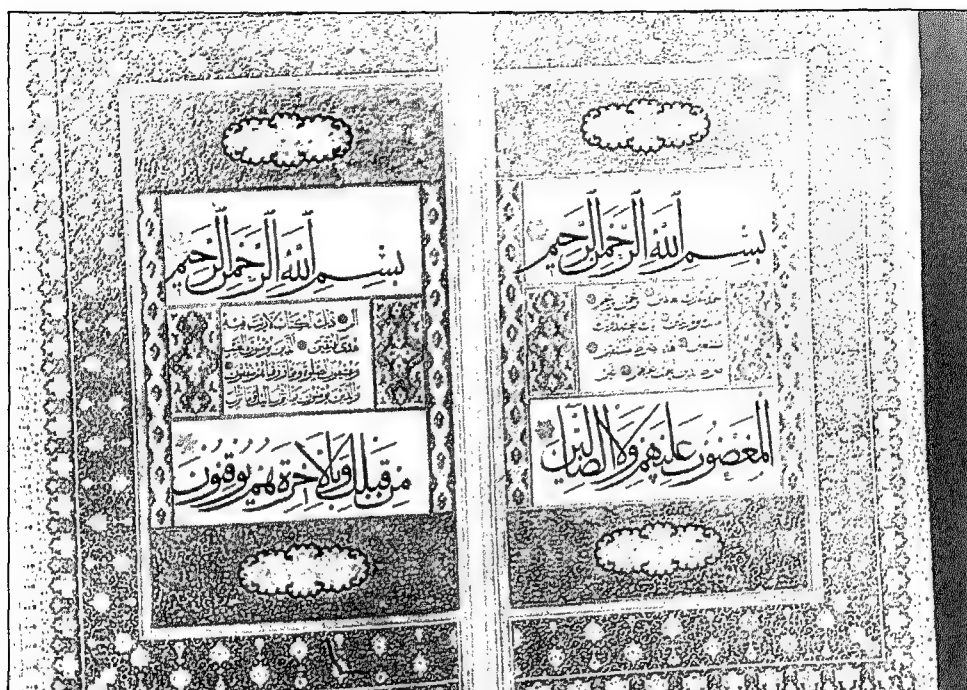 بِسْمِ اللّٰهِ الرَّحْمٰنِ الرَّحِيمِ
الْمَغْضُوبِ عَلَيْهِمْ وَلَا الضَّالِّينَ
بِسْمِ اللّٰهِ الرَّحْمٰنِ الرَّحِيمِ
الم ذلك الكتاب لا ريب فيه
هدى للمتقين الذين يؤمنون بالغيب
ويقيمون الصلوة ومما رزقناهم ينفقون
والذين يؤمنون بما انزل اليك وما انزل
مِنْ قَبْلِكَ وَبِالْاٰخِرَةِ هُمْ يُوقِنُونَ